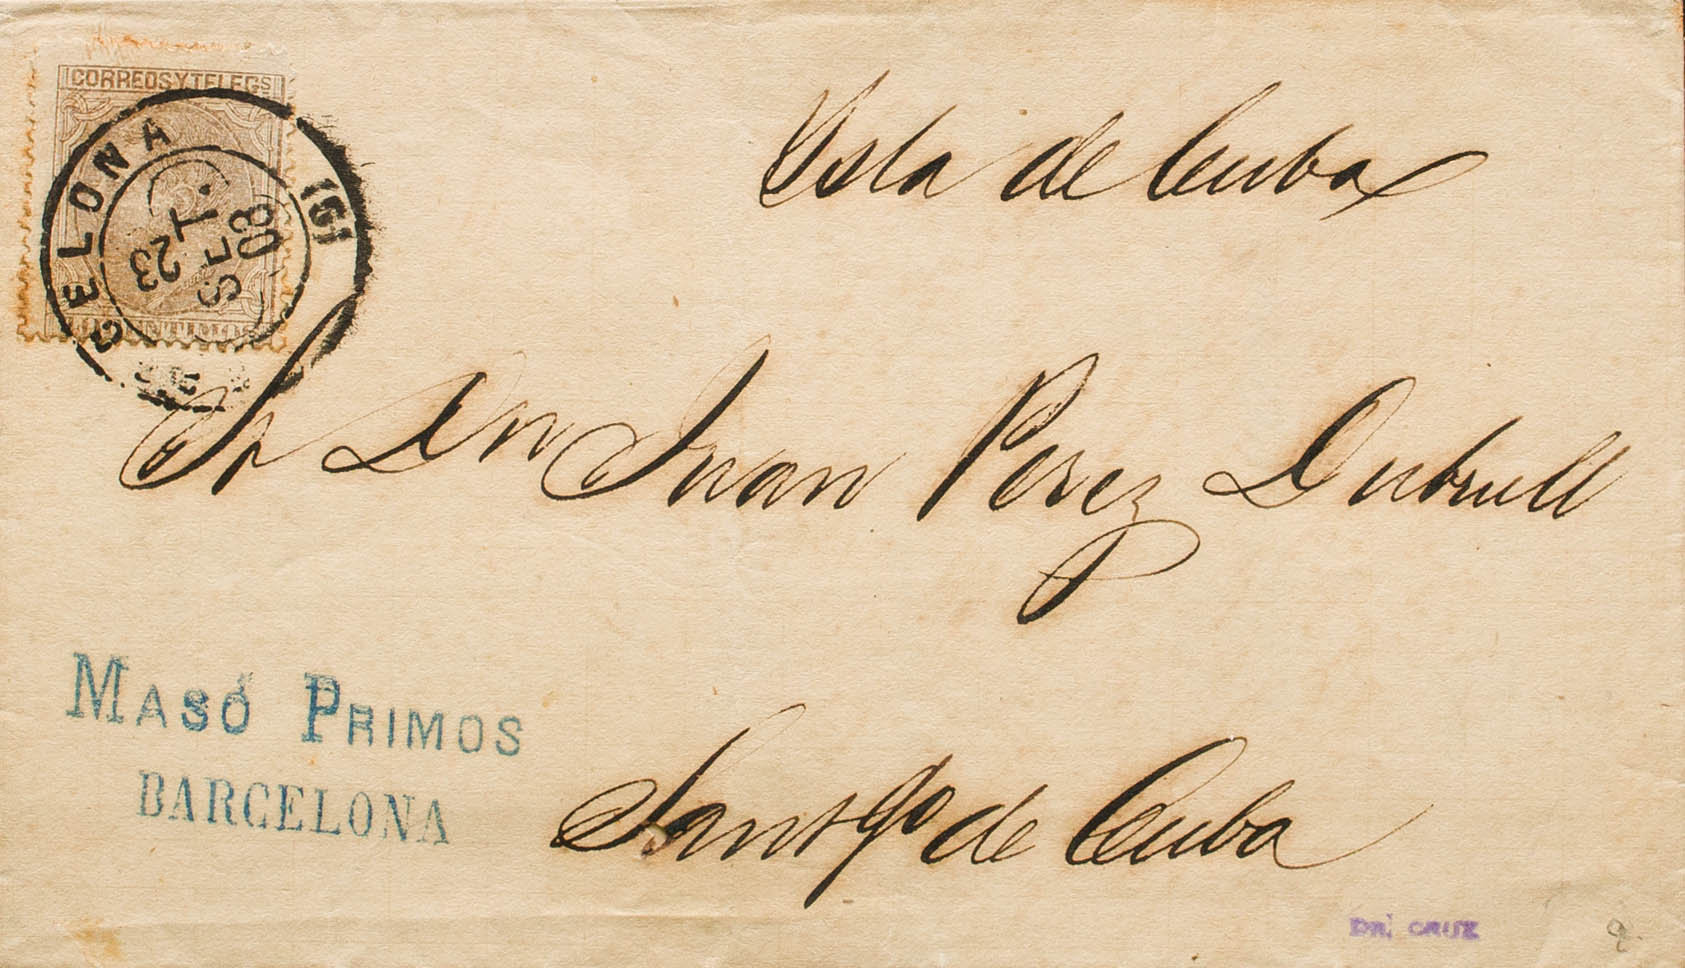 CORREOS Y TELEGS
BARCELONA
23
SET.
80
CENTIMOS
Isla de Cuba
Sr Dn Juan Perez Dubrull
MASÓ PRIMOS
BARCELONA
Santgo de Cuba
DR. CRUZ